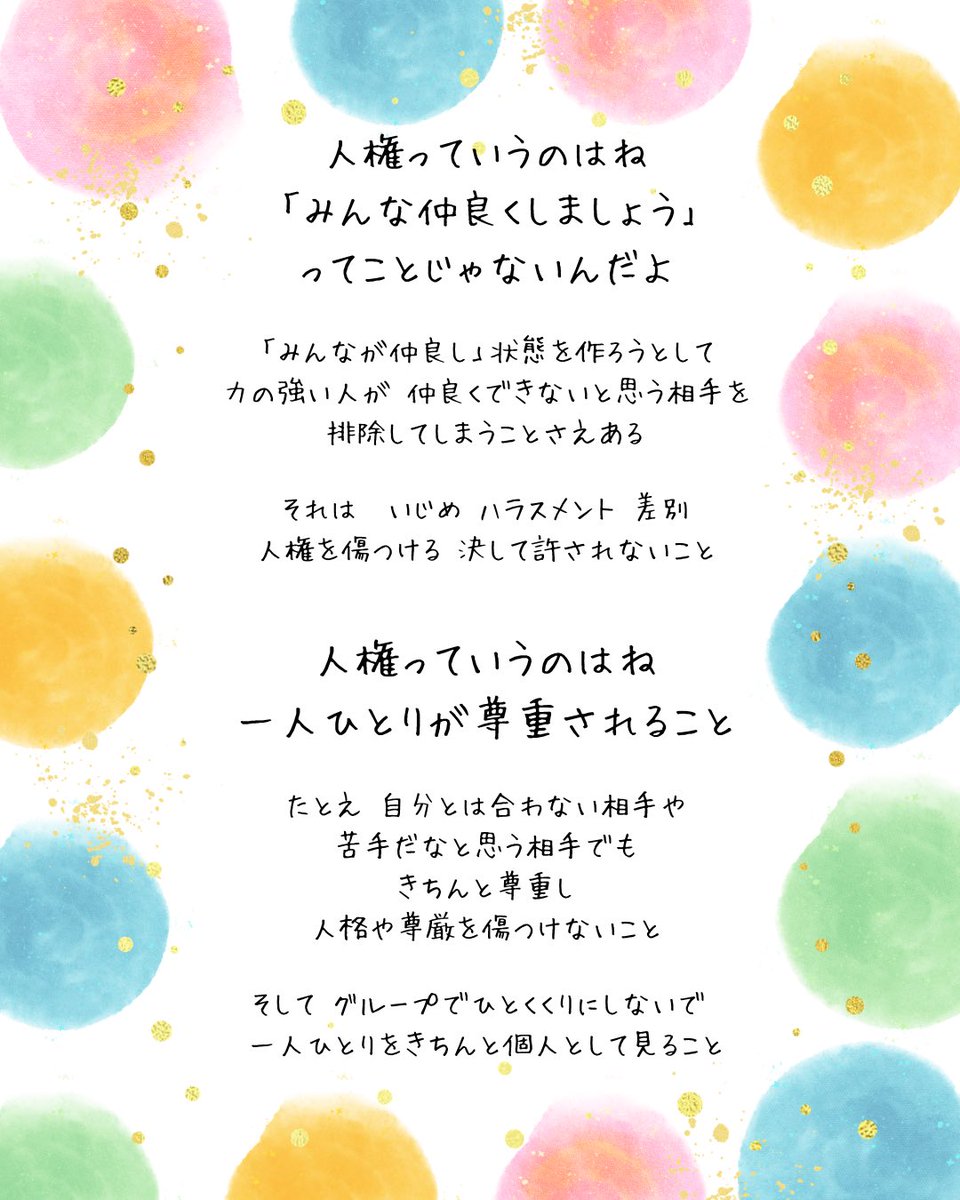 人権っていうのはね
「みんな仲良くしましょう」
ってことじゃないんだよ
「みんなが仲良し」状態を作ろうとして
力の強い人が 仲良くできないと思う相手を
排除してしまうことさえある
それは　いじめ ハラスメント 差別
人権を傷つける 決して許されないこと
人権っていうのはね
一人ひとりが尊重されること
たとえ 自分とは合わない相手や
苦手だなと思う相手でも
きちんと尊重し
人格や尊厳を傷つけないこと
そして グループでひとくくりにしないで
一人ひとりをきちんと個人として見ること